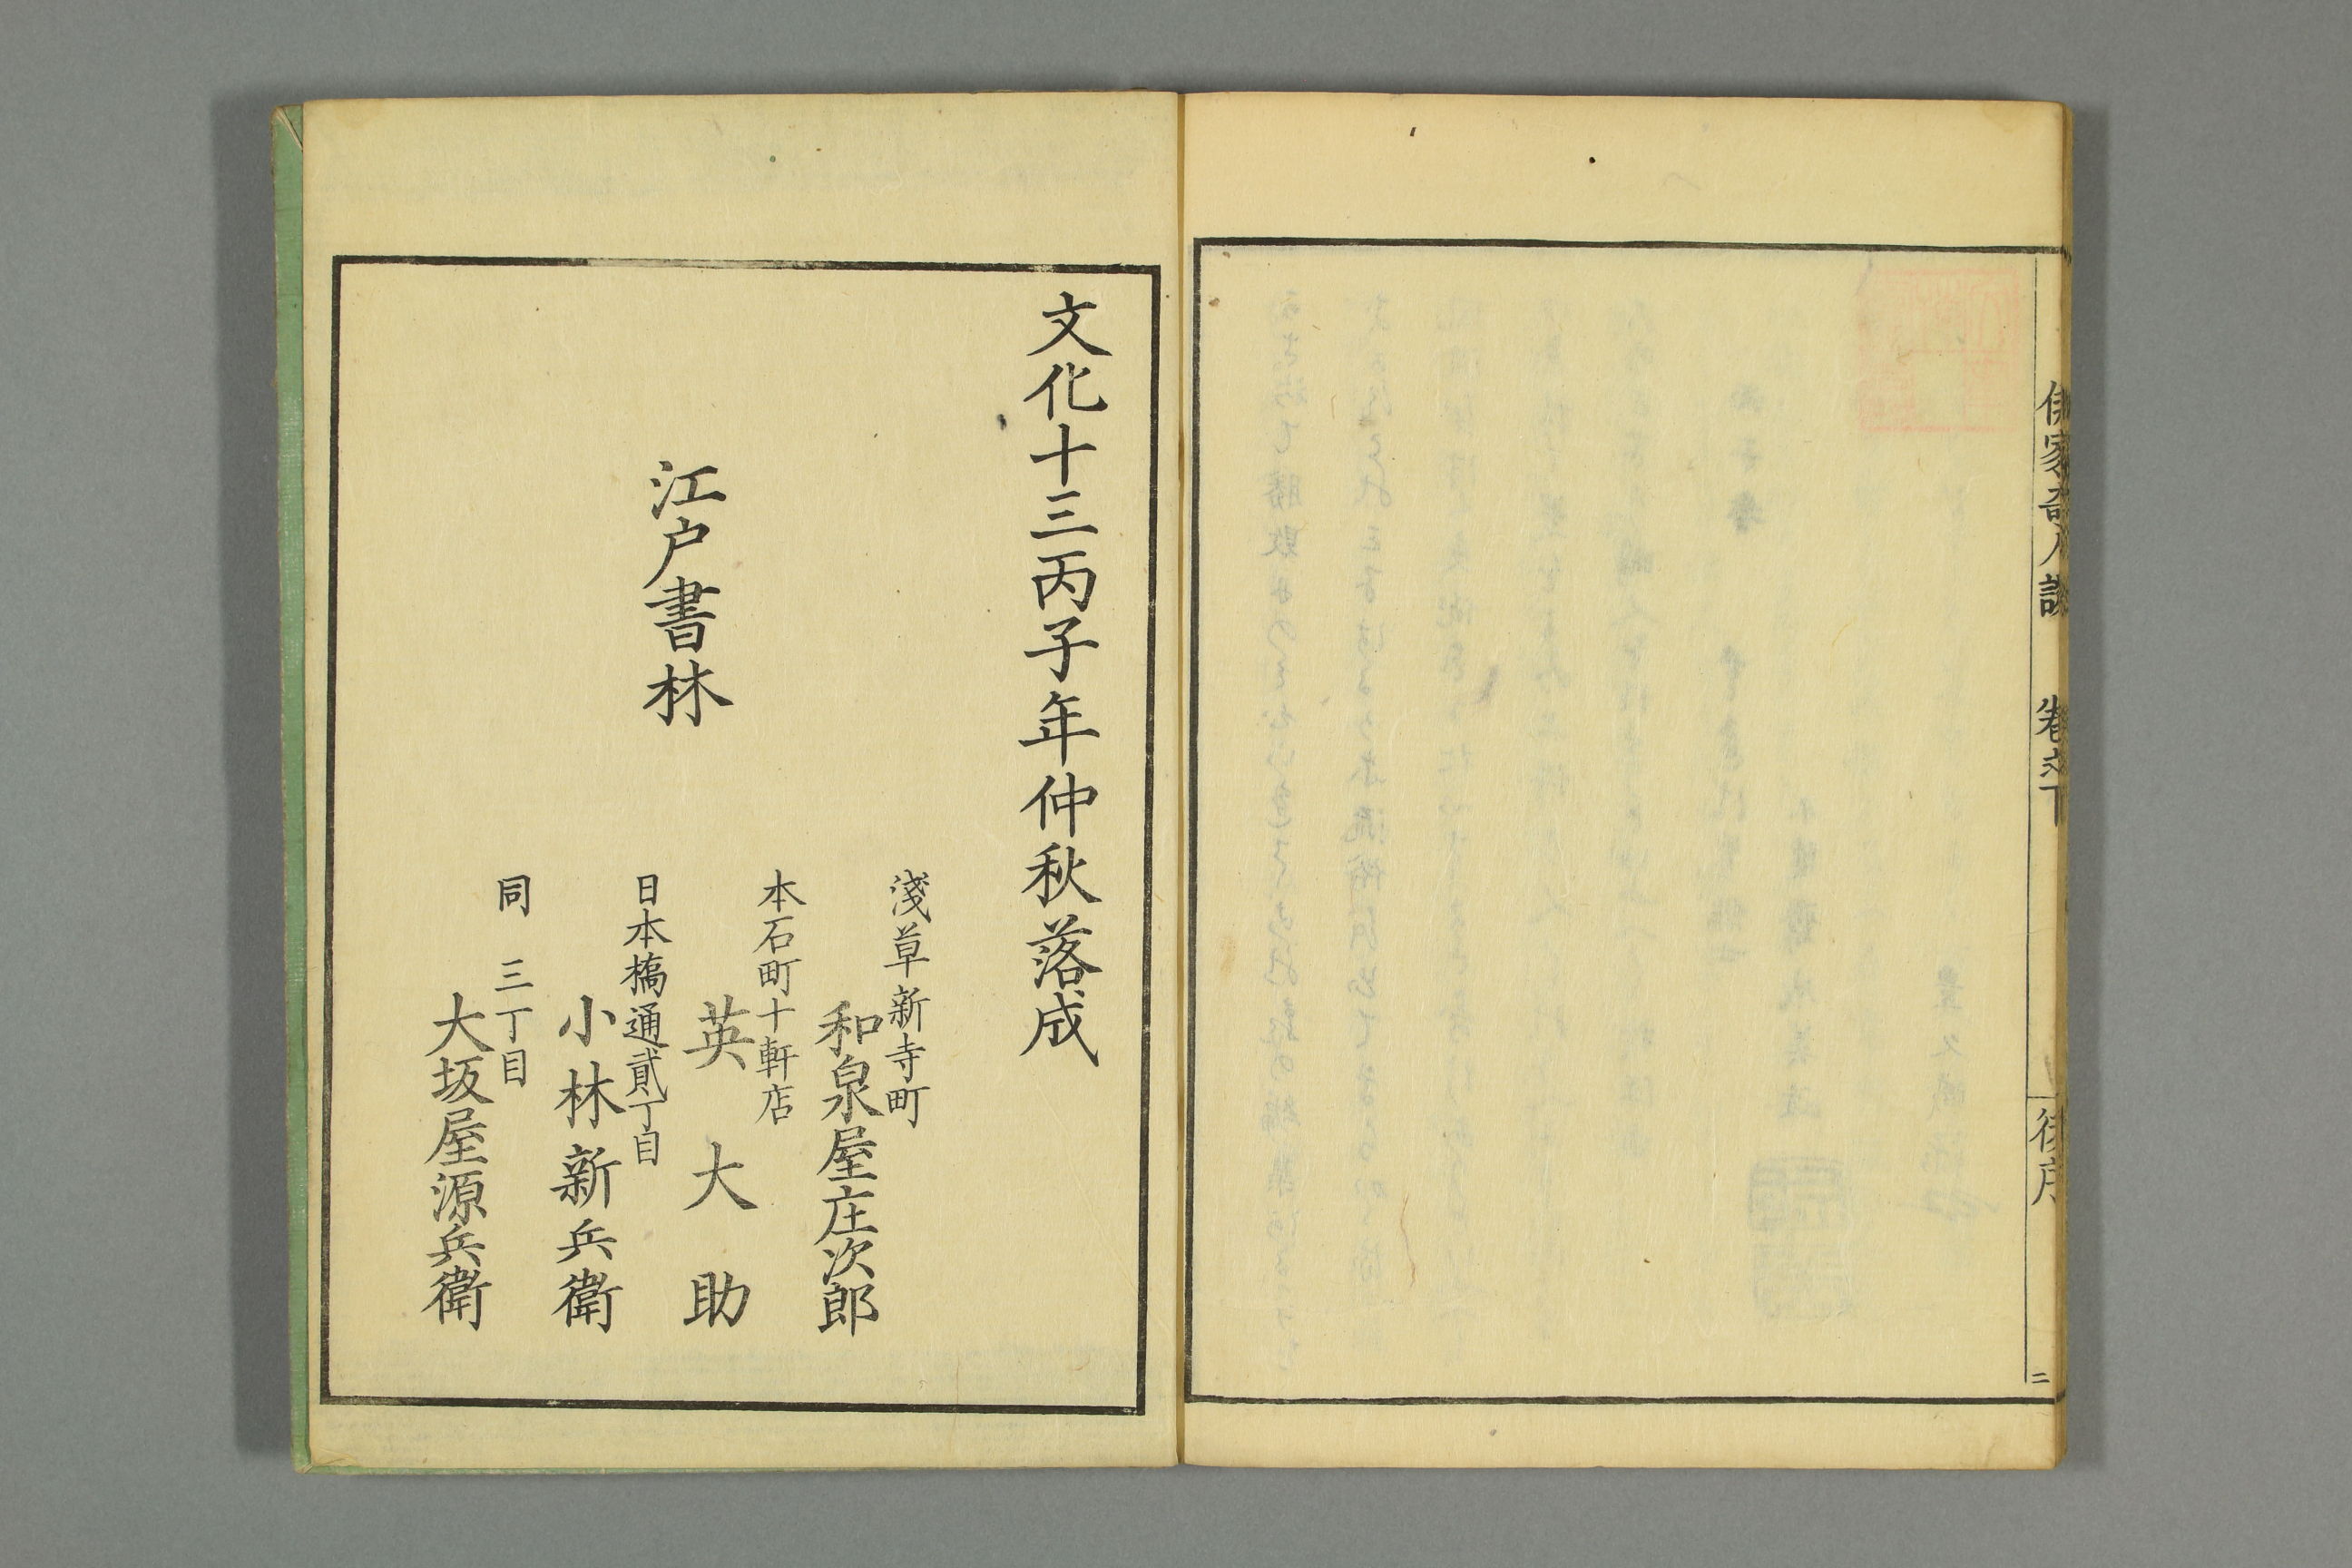 俳家奇人談 巻之下
後序
二
文化十三丙子年仲秋落成
江戸書林
淺草新寺町
和泉屋庄次郎
本石町十軒店
英大助
日本橋通貳丁目
小林新兵衛
同 三丁目
大坂屋源兵衛